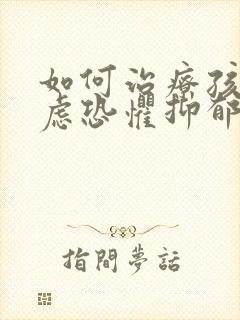 如何治療孩
慮恐懼抑郁
指間夢話